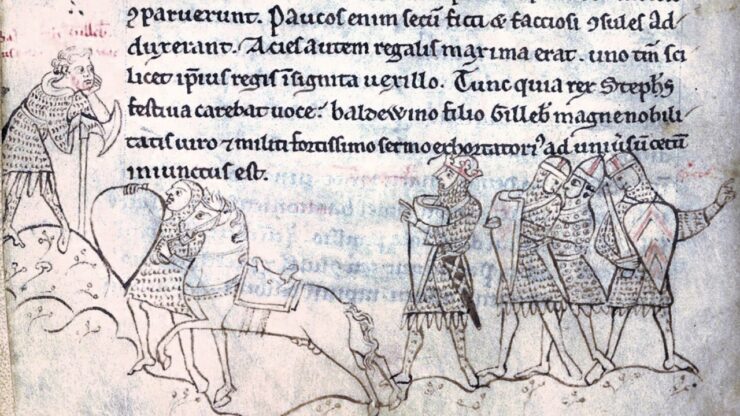 ꝯparuerunt. Paucos enim secū ficti & facciosi ꝯsules ad
duxerant. Acies autem regalis maxima erat. uno tm̄ sci
licet ip̄ius regis īsignita uexillo. Tunc quia rex Stephs
festiua carebat uoce: baldewino filio Gilleb̄ magne nobili
tatis uiro & militi fortissimo sermo exhortatori᾽ ad uniu᾽sū cetū
iniunctus est.